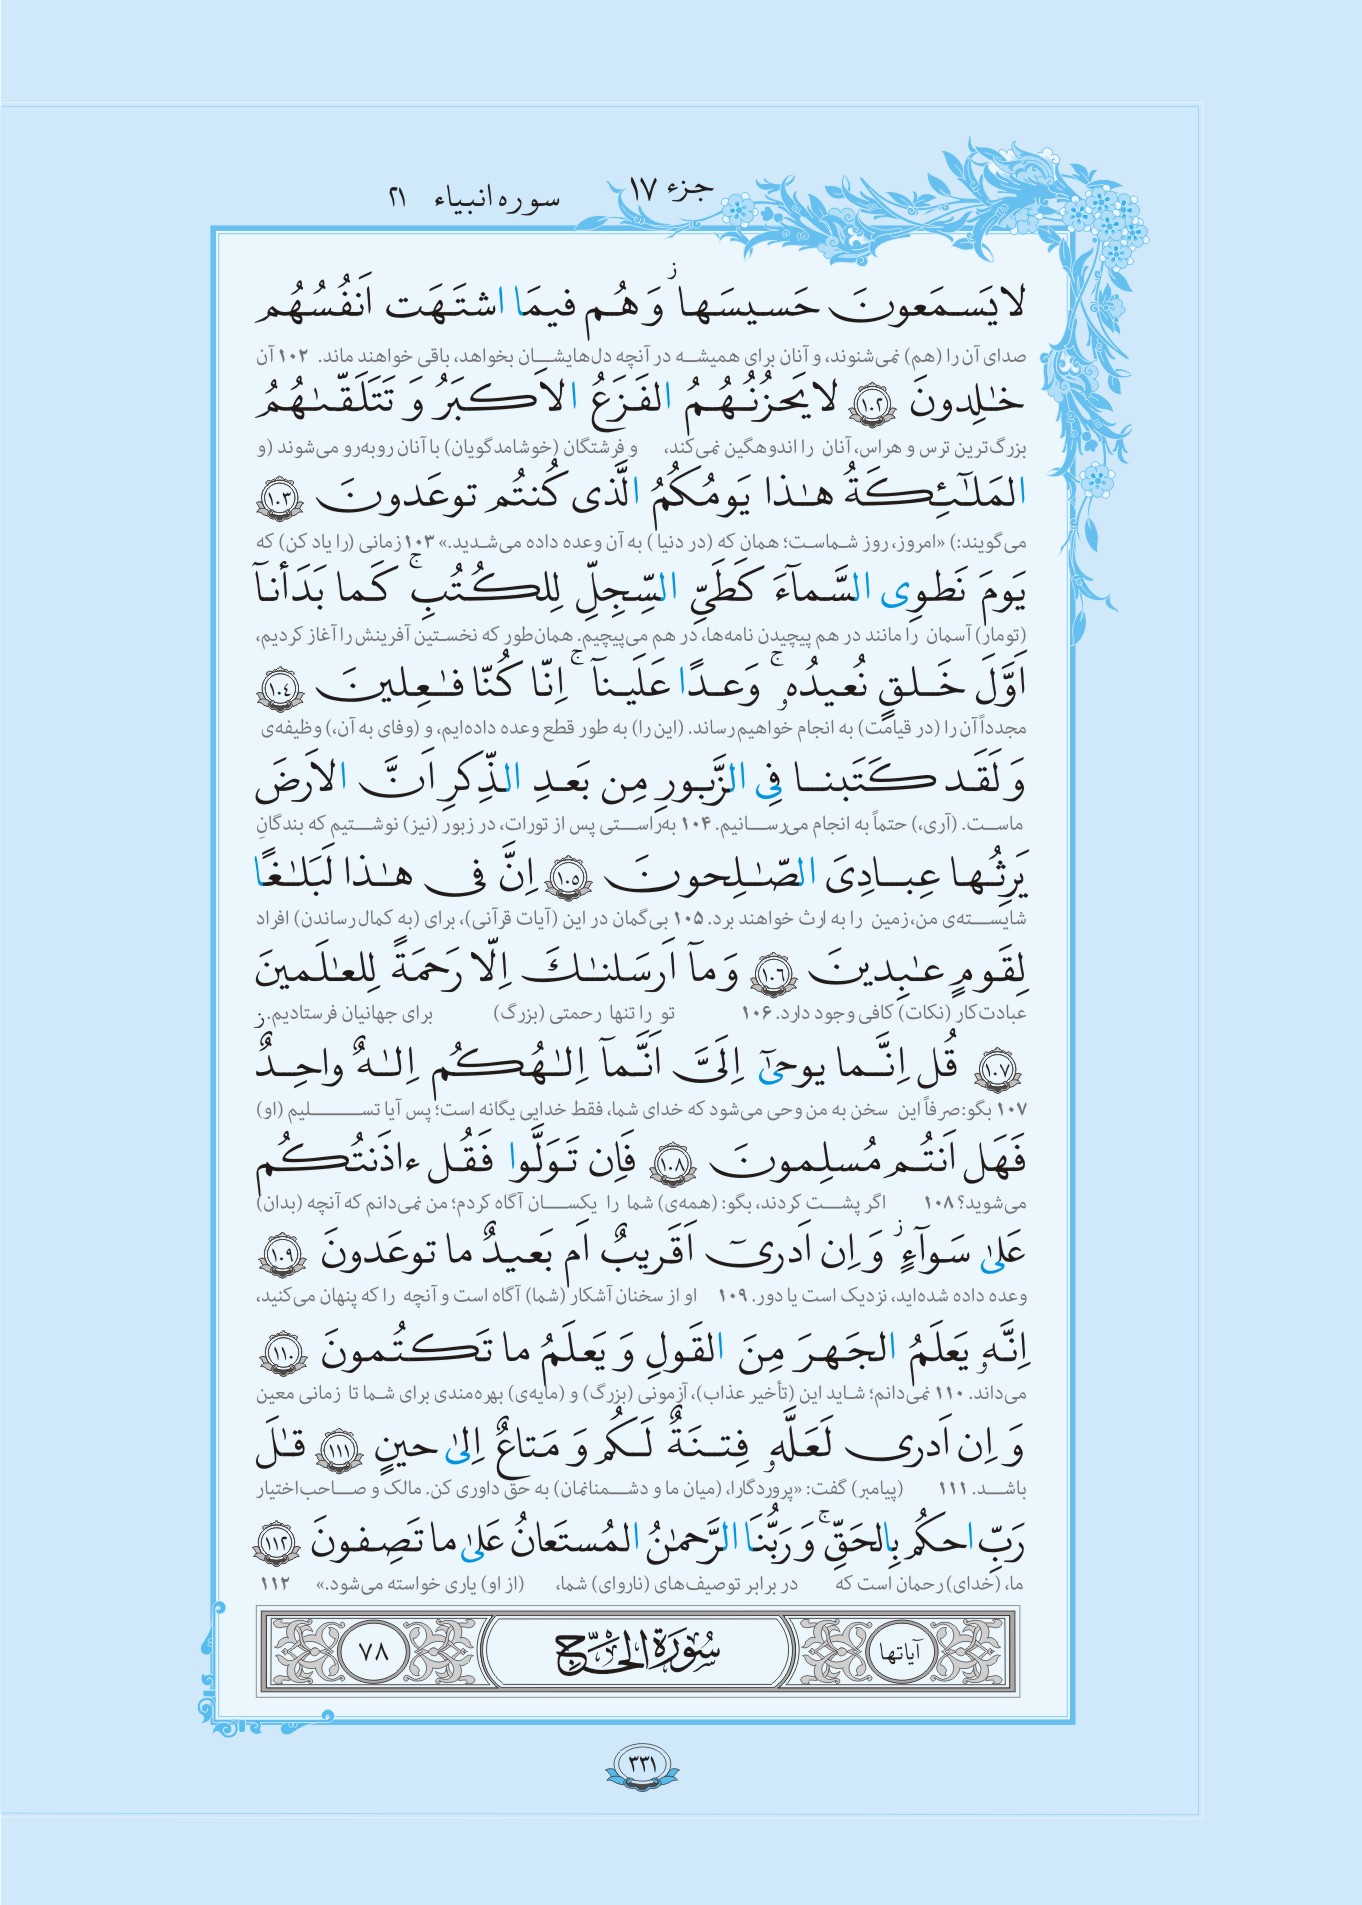 جزء ۱۷
سوره انبیاء ۲۱
لا يَسمَعونَ حَسيسَها ۖ ز وَ هُم فيمَا اشتَهَت اَنفُسُهُم
صدای آن را (هم) نمی‌شنوند، و آنان برای همیشه در آنچه دل‌هایشان بخواهد، باقی خواهند ماند. ۱۰۲ آن
خٰلِدونَ ﴿١٠٢﴾ لا يَحزُنُهُمُ الفَزَعُ الاَكبَرُ وَ تَتَلَقّىٰهُمُ
بزرگ‌ترین ترس و هراس، آنان را اندوهگین نمی‌کند، و فرشتگان (خوشامدگویان) با آنان روبه‌رو می‌شوند (و
المَلٰٓئِكَةُ هٰذا يَومُكُمُ الَّذى كُنتُم توعَدونَ ﴿١٠٣﴾
می‌گویند:) «امروز، روز شماست؛ همان که (در دنیا) به آن وعده داده می‌شدید.» ۱۰۳ زمانی (را یاد کن) که
يَومَ نَطوِى السَّمآءَ كَطَىِّ السِّجِلِّ لِلكُتُبِ ۚ كَما بَدَأنآ
(تومار) آسمان را مانند در هم پیچیدن نامه‌ها، در هم می‌پیچیم. همان‌طور که نخستین آفرینش را آغاز کردیم،
اَوَّلَ خَلقٍ نُعيدُهٖ ۚ وَعدًا عَلَينآ ۚ اِنّا كُنّا فٰعِلينَ ﴿١٠٤﴾
مجدداً آن را (در قیامت) به انجام خواهیم رساند. (این را) به طور قطع وعده داده‌ایم، و (وفای به آن،) وظیفه‌ی
وَ لَقَد كَتَبنا فِى الزَّبورِ مِن بَعدِ الذِّكرِ اَنَّ الاَرضَ
ماست. (آری،) حتماً به انجام می‌رسانیم. ۱۰۴ به‌راستی پس از تورات، در زبور (نیز) نوشتیم که بندگانِ
يَرِثُها عِبادِىَ الصّٰلِحونَ ﴿١٠٥﴾ اِنَّ فى هٰذا لَبَلٰغًا
شایسته‌ی من، زمین را به ارث خواهند برد. ۱۰۵ بی‌گمان در این (آیات قرآنی)، برای (به کمال رساندن) افراد
لِقَومٍ عٰبِدينَ ﴿١٠٦﴾ وَ مآ اَرسَلنٰكَ اِلّا رَحمَةً لِلعٰلَمينَ
عبادت‌کار (نکات) کافی وجود دارد. ۱۰۶ تو را تنها رحمتی (بزرگ) برای جهانیان فرستادیم.
﴿١٠٧﴾ قُل اِنَّما يوحىٰٓ اِلَىَّ اَنَّمآ اِلٰهُكُم اِلٰهٌ واحِدٌ ز
۱۰۷ بگو: صرفاً این سخن به من وحی می‌شود که خدای شما، فقط خدایی یگانه است؛ پس آیا تسلیم (او)
فَهَل اَنتُم مُسلِمونَ ﴿١٠٨﴾ فَاِن تَوَلَّوا فَقُل ءاذَنتُكُم
می‌شوید؟ ۱۰۸ اگر پشت کردند، بگو: (همه‌ی) شما را یکسان آگاه کردم؛ من نمی‌دانم که آنچه (بدان)
عَلىٰ سَوآءٍ ز وَ اِن اَدرىٓ اَقَريبٌ اَم بَعيدٌ ما توعَدونَ ﴿١٠٩﴾
وعده داده شده‌اید، نزدیک است یا دور. ۱۰۹ او از سخنان آشکار (شما) آگاه است و آنچه را که پنهان می‌کنید،
اِنَّهٗ يَعلَمُ الجَهرَ مِنَ القَولِ وَ يَعلَمُ ما تَكتُمونَ ﴿١١٠﴾
می‌داند. ۱۱۰ نمی‌دانم؛ شاید این (تأخیر عذاب)، آزمونی (بزرگ) و (مایه‌ی) بهره‌مندی برای شما تا زمانی معین
وَ اِن اَدرى لَعَلَّهٗ فِتنَةٌ لَكُم وَ مَتاعٌ اِلىٰ حينٍ ﴿١١١﴾ قٰلَ
باشد. ۱۱۱ (پیامبر) گفت: «پروردگارا، (میان ما و دشمنانمان) به حق داوری کن. مالک و صاحب‌اختیار
رَبِّ احكُم بِالحَقِّ ۚ وَ رَبُّنَا الرَّحمٰنُ المُستَعانُ عَلىٰ ما تَصِفونَ ﴿١١٢﴾
ما، (خدای) رحمان است که در برابر توصیف‌های (ناروای) شما، (از او) یاری خواسته می‌شود.» ۱۱۲
آیاتها سُورَةُ الحَجّ ۷۸
۳۳۱